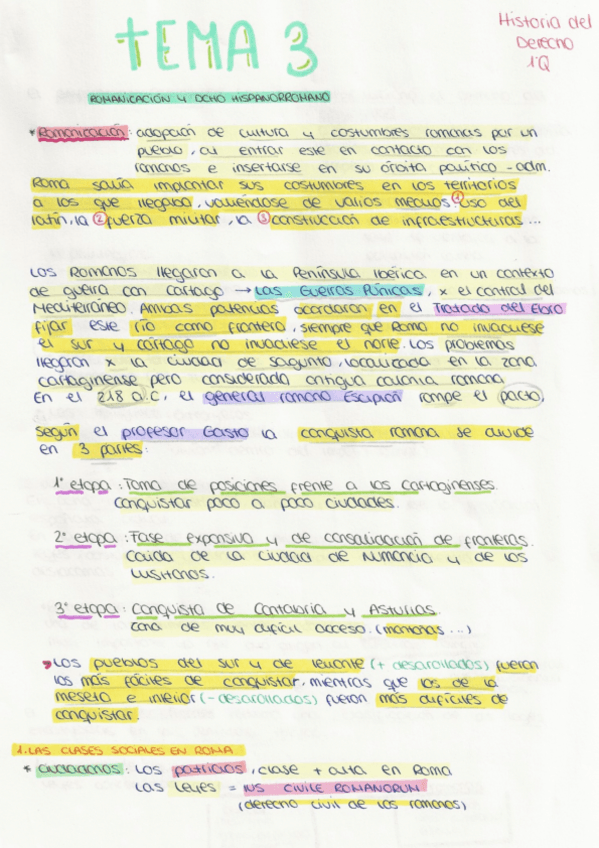 TEMA 3
Historia del
Derecho
1ºQ
ROMANICACIÓN Y DCHO HISPANORROMANO
* Romanicación: adopción de cultura y costumbres romanas por un
pueblo, al entrar este en contacto con los
romanos e insertarse en su órbita político-adm.
Roma sabía implantar sus costumbres en los territorios
a los que llegaba, valiéndose de varios medios: ① uso del
latín, la ② fuerza militar, la ③ construcción de infraestructuras ...
Los Romanos llegaron a la Península Ibérica en un contexto
de guerra con Cartago → Las Guerras Púnicas, x el control del
Mediterráneo. Ambas potencias acordaron en el Tratado del Ebro
fijar este río como frontera, siempre que Roma no invadiese
el sur y Cartago no invadiese el norte. Los problemas
llegaron x la ciudad de Sagunto, localizada en la zona
cartaginense pero considerada antigua colonia romana
En el 218 a.C, el general romano Escipión rompe el pacto,
según el profesor Gasto la conquista romana se divide
en 3 partes:
1ª etapa: Toma de posiciones frente a los cartaginenses.
conquistar poco a poco ciudades.
2ª etapa: Fase expansiva y de consolidación de fronteras.
Caída de la ciudad de Numancia y de los
lusitanos.
3ª etapa: Conquista de Cantabria y Asturias.
zona de muy difícil acceso. (montañas ...)
Los pueblos del sur y de levante (+ desarollados) fueron
los más fáciles de conquistar, mientras que los de la
meseta e interior (- desarollados) fueron más difíciles de
conquistar.
1. LAS CLASES SOCIALES EN ROMA
* Ciudadanos: Los patricios, clase + alta en Roma
Las leyes = IUS CIVILE ROMANORUN
(derecho civil de los romanos)